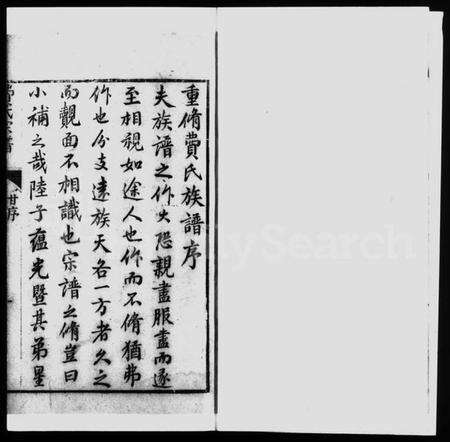 重脩費氏族譜序
夫族譜之作也恐親盡服盡而遂
至相視如途人也作而不脩猶弗
作也分支遠族天各一方者久之
而覿面不相識也宗譜之脩豈曰
小補之哉陸子蘊光暨其弟星
費氏宗譜
序
MySearch